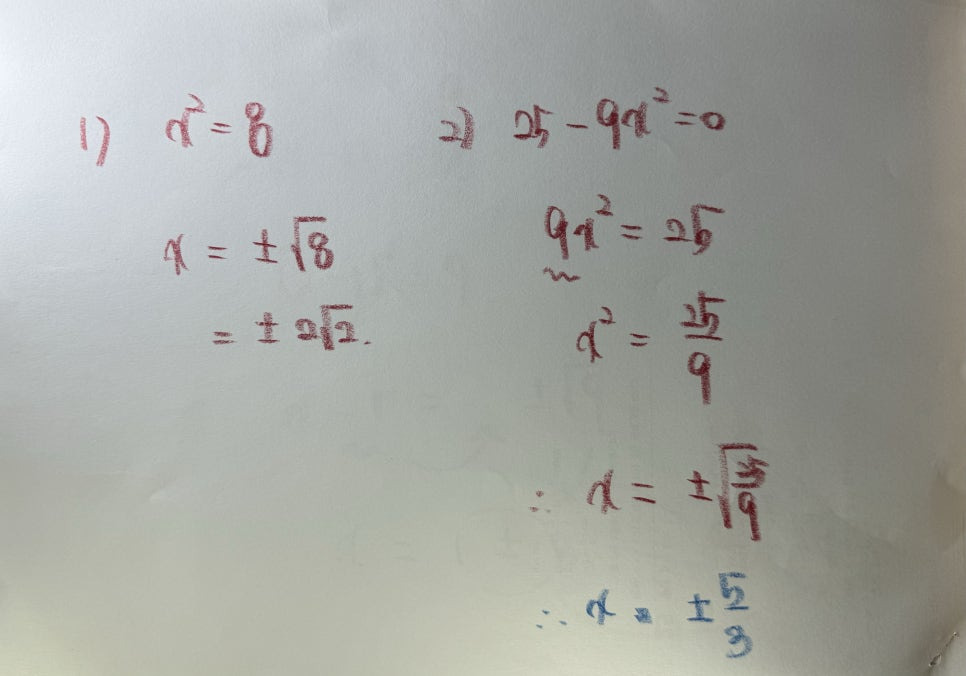 1) x² = 8
x = ± √8
= ± 2√2.
2) 25 - 9x² = 0
9x² = 25
x² = 25/9
∴ x = ± √(25/9)
∴ x = ± 5/3